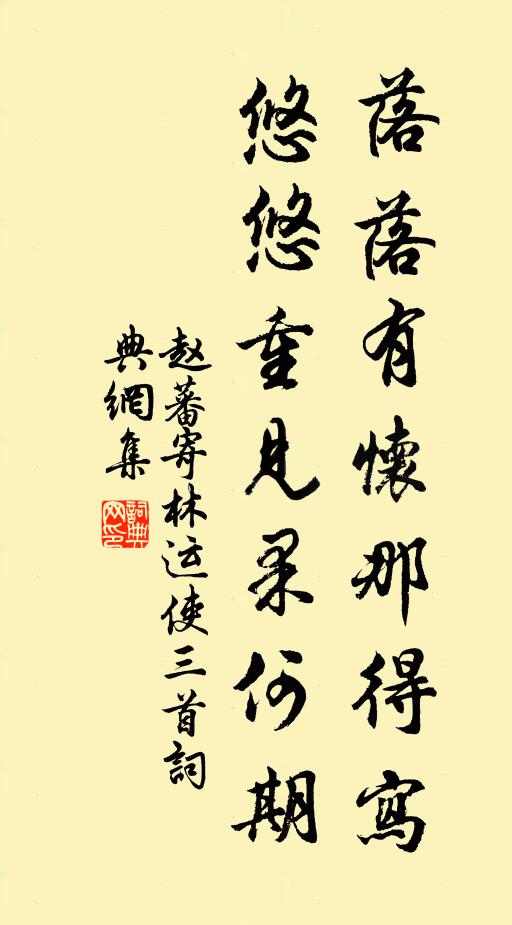 落落有懷那得寫
悠悠重見果何期
赵蕃寄林运使三首詞
典網集
詞典
网印